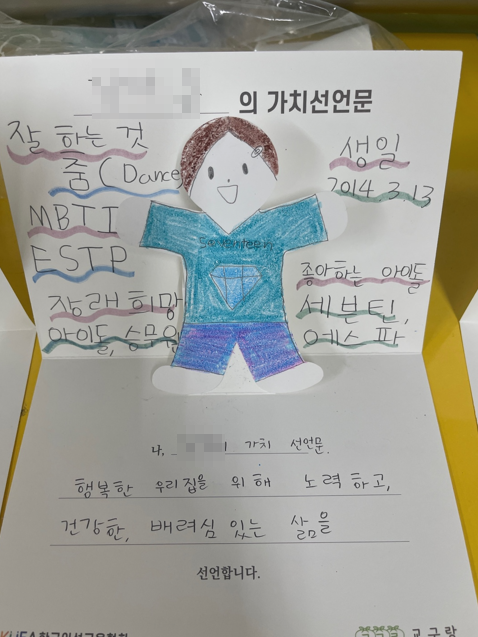 의 가치선언문
잘 하는 것
춤 (Dance)
MBTI
ESTP
장래희망
아이돌, 승무원
생일
2014.3.13
좋아하는 아이돌
세븐틴,
에스파
나, 의 가치 선언문.
행복한 우리집을 위해 노력하고,
건강한, 배려심 있는 삶을
선언합니다.
교구랑